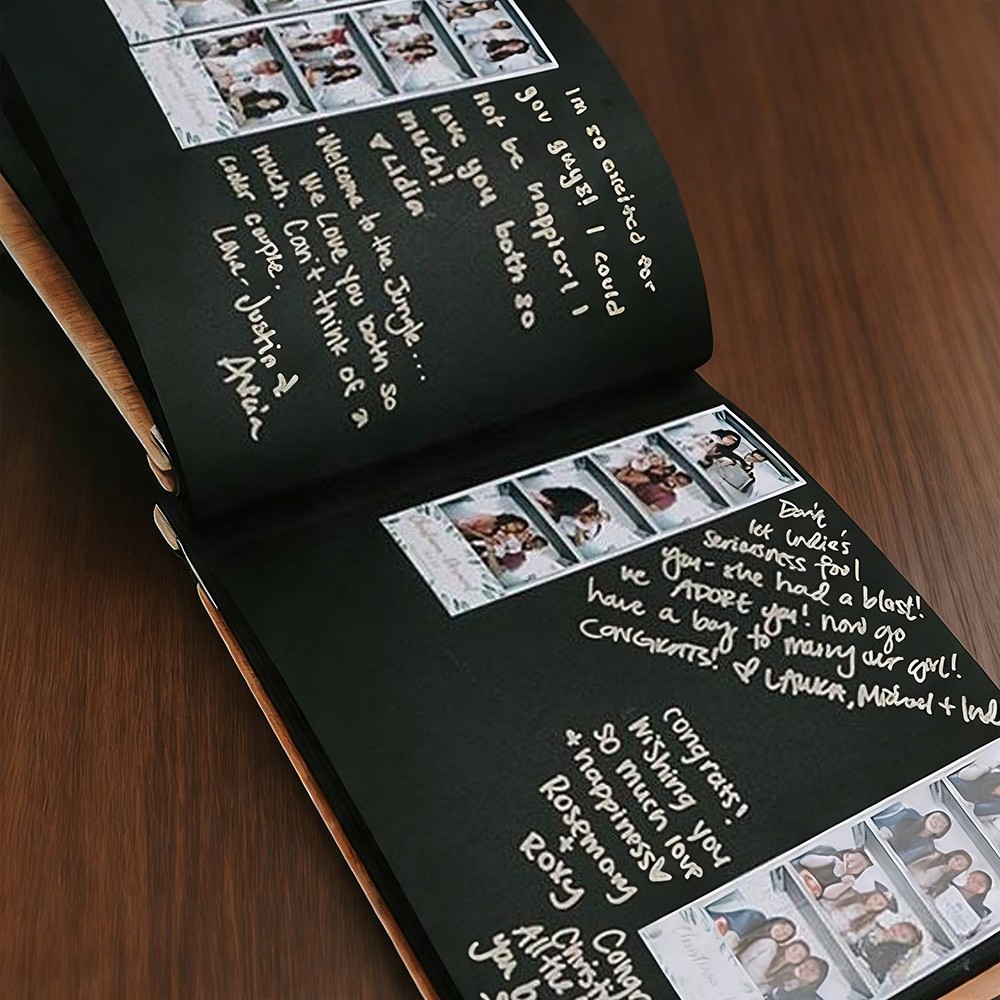 Im so excited for
you guys! I could
not be happier! I
love you both so
much!
♥ Lidia
·Welcome to the Jungle....
We Love You both so
much. Can't think of a
cooler couple.
Love - Justin &
Don't
let Indie's
seriousness fool
you - she had a blast!
we ADORE you! now go
have a bay to marry our girl!
CONGRATS! ♡ LAURA, Michael + Ind
congrats!
wishing you
so much love
+ happiness♡
Rosemary
+
Roxy
Congr
Christi
All the
you b